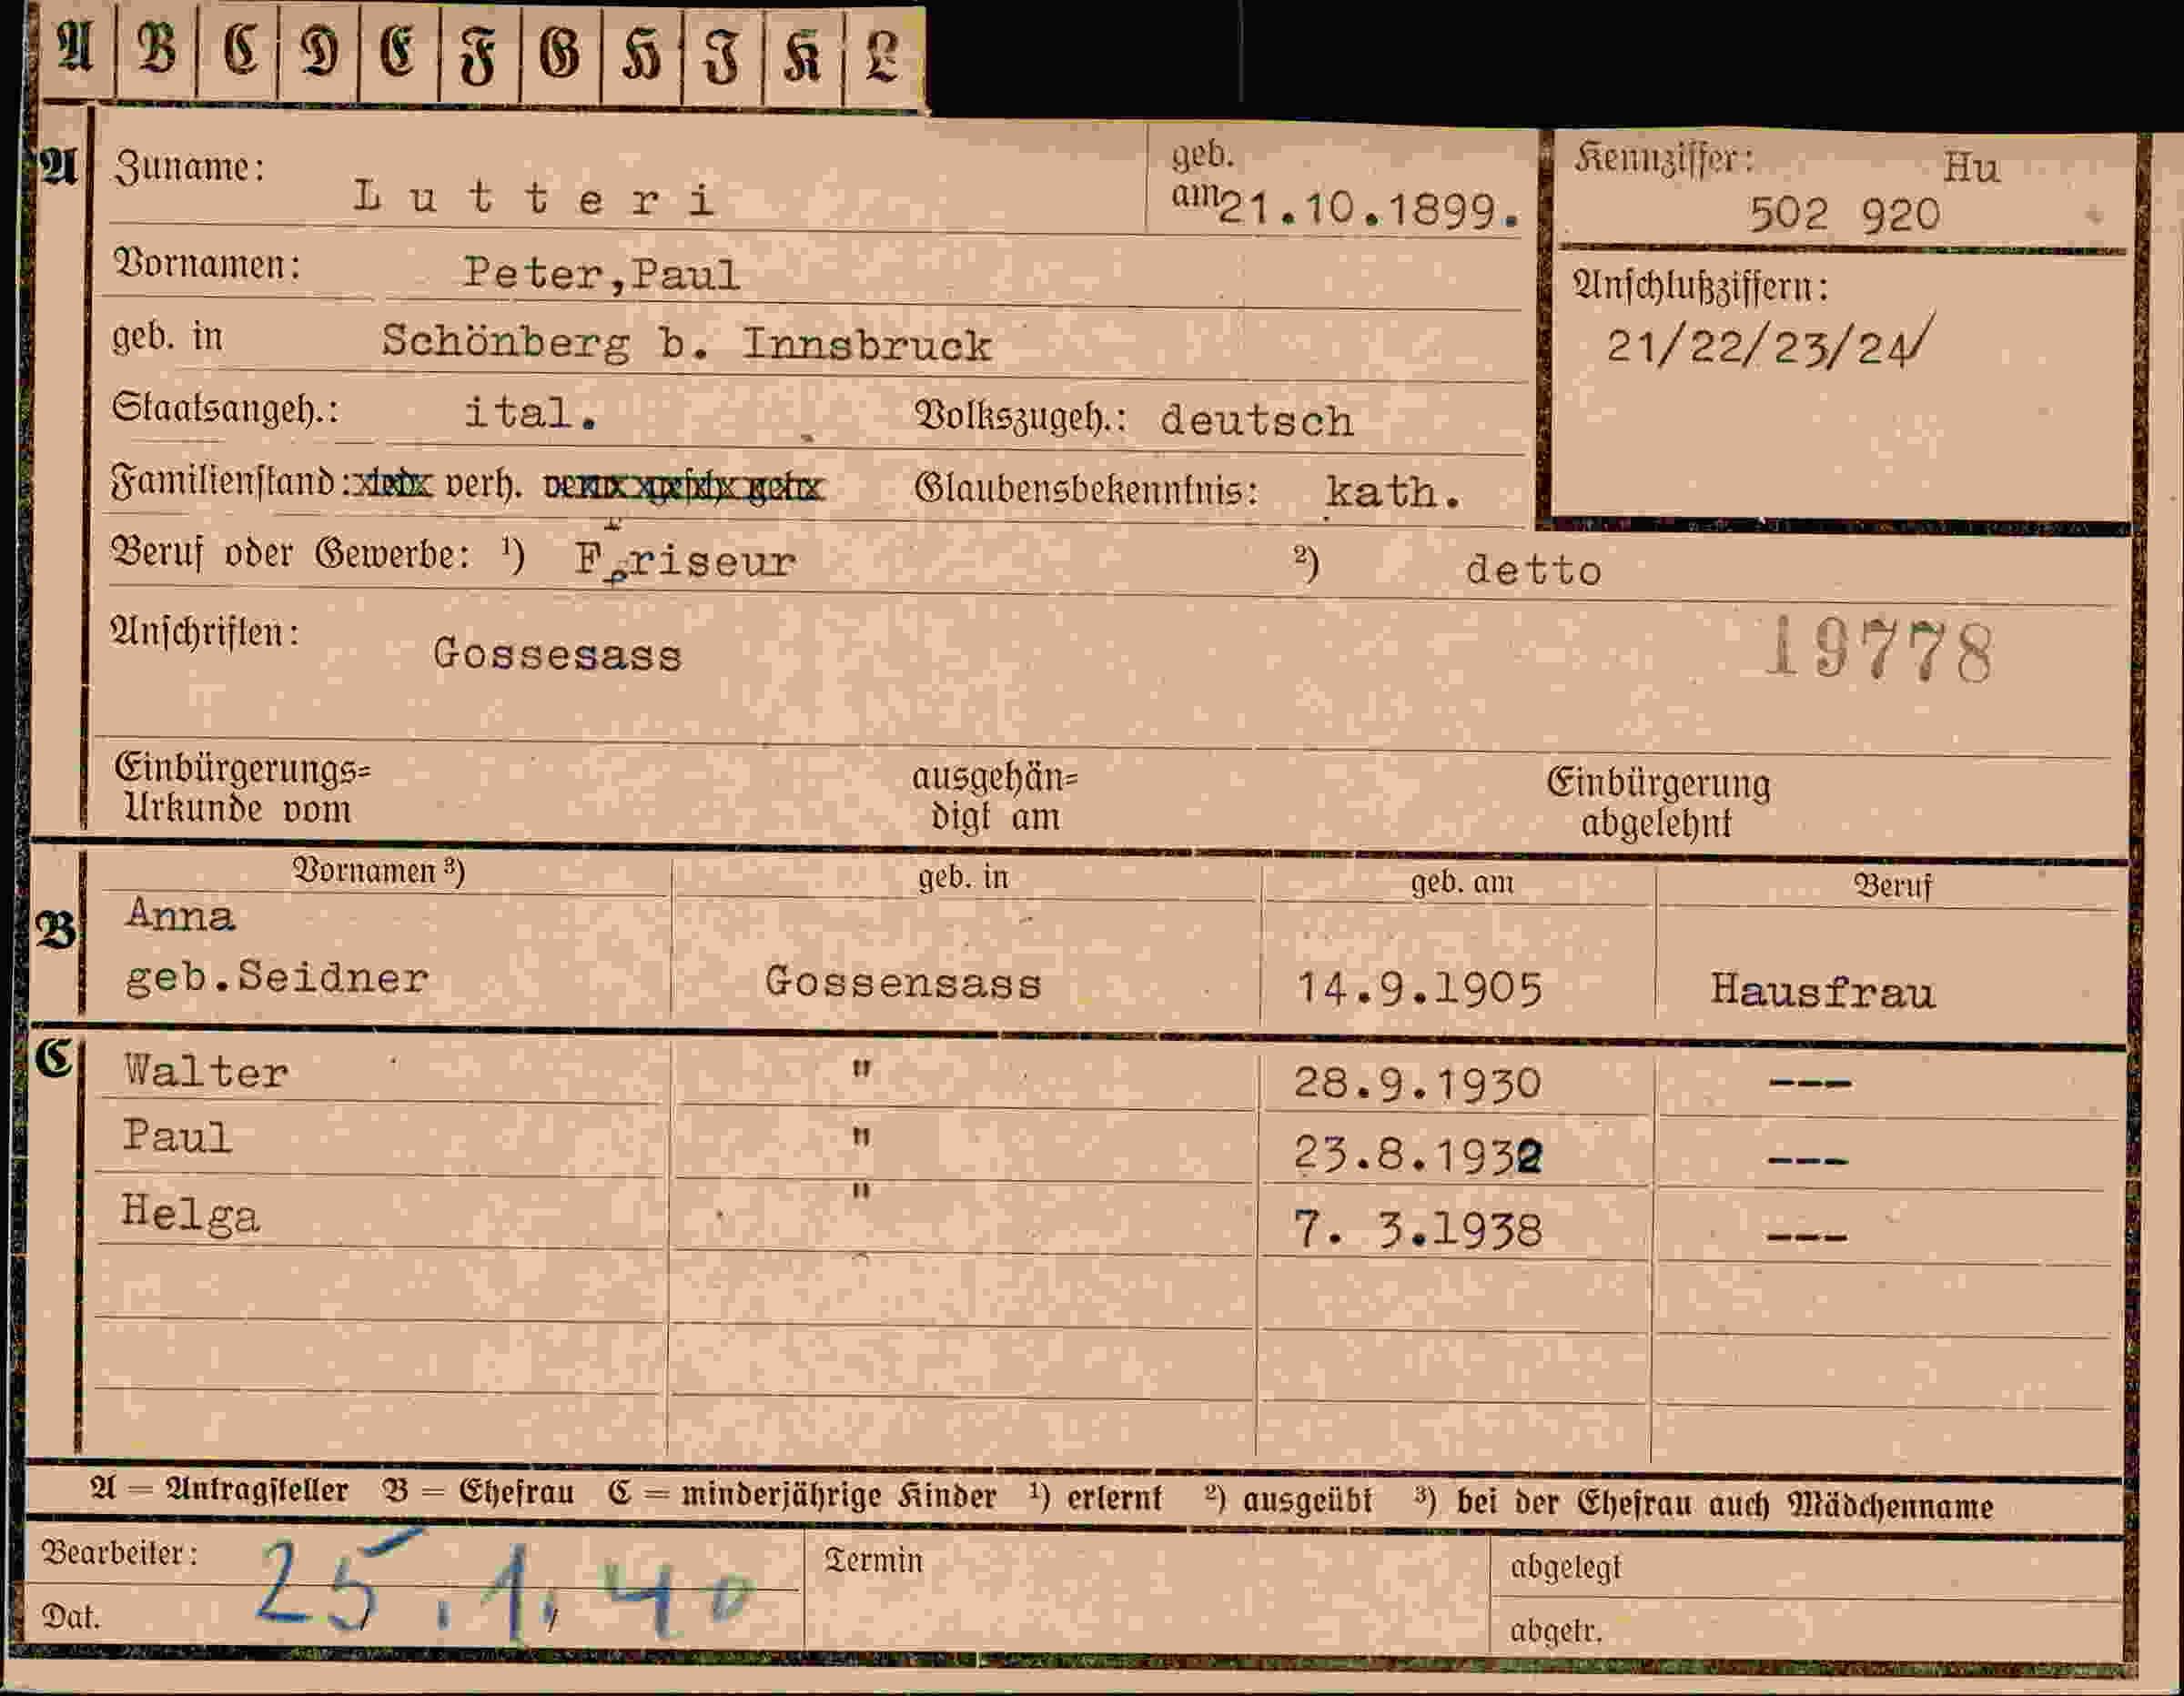 A B C D E F G H I K L
A Zuname: Lutteri geb. am 21.10.1899. Kennziffer: Hu
502 920
Vornamen: Peter,Paul
Anschlußziffern:
geb. in Schönberg b. Innsbruck
21/22/23/24/
Staatsangeh.: ital. Volkszugeh.: deutsch
Familienstand: verh. Glaubensbekenntnis: kath.
Beruf oder Gewerbe: ¹) Friseur ²) detto
Anschriften: Gossesass
19778
Einbürgerungs=
Urkunde vom
ausgehän=
digt am
Einbürgerung
abgelehnt
Vornamen ³) geb. in geb. am Beruf
B Anna
geb.Seidner Gossensass 14.9.1905 Hausfrau
C Walter " 28.9.1930 ---
Paul " 23.8.1932 ---
Helga " 7. 3.1938 ---
A = Antragsteller B = Ehefrau C = minderjährige Kinder ¹) erlernt ²) ausgeübt ³) bei der Ehefrau auch Mädchenname
Bearbeiter: Termin abgelegt
Dat. 25.1.40 abgetr.